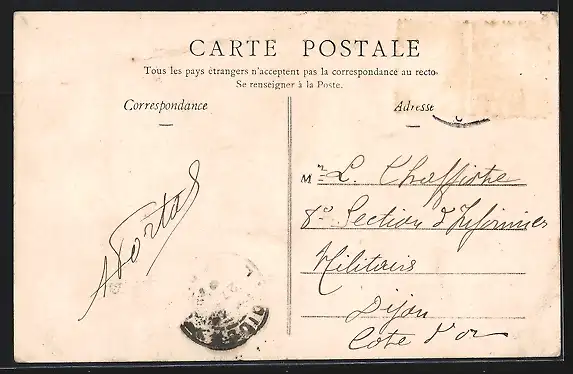 CARTE POSTALE
Tous les pays étrangers n'acceptent pas la correspondance au recto.
Se renseigner à la Poste.
Correspondance
Adresse
A Portal
M r L.
8e Section d'Infirmiers
Militaires
Dijon
Cote d'or